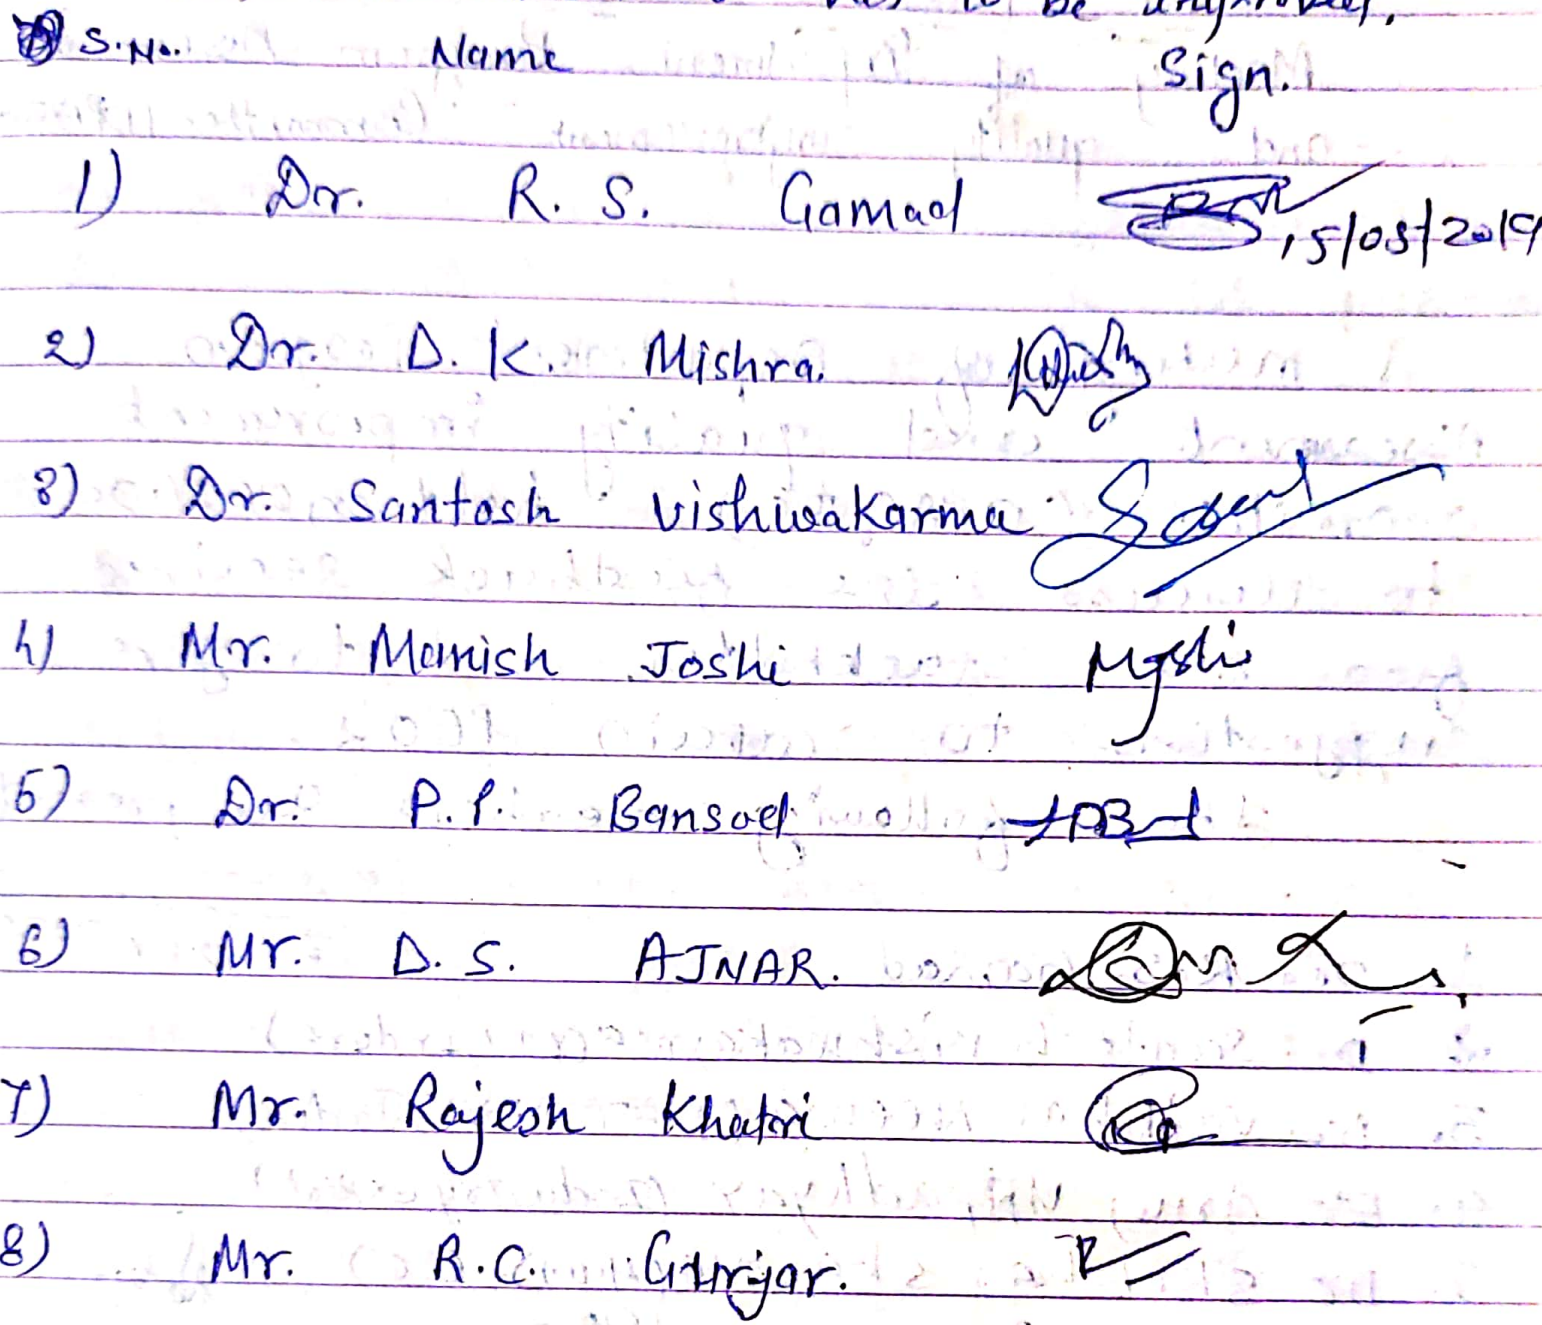 to be
S.No. Name Sign.
1) Dr. R. S. Gamad 15/03/2019
2) Dr. D. K. Mishra.
3) Dr. Santosh Vishwakarma
4) Mr. Manish Joshi MJoshi
5) Dr. P. P. Bansod
6) Mr. D. S. AJNAR.
7) Mr. Rajesh Khatri
8) Mr. R.C. Gurjar.